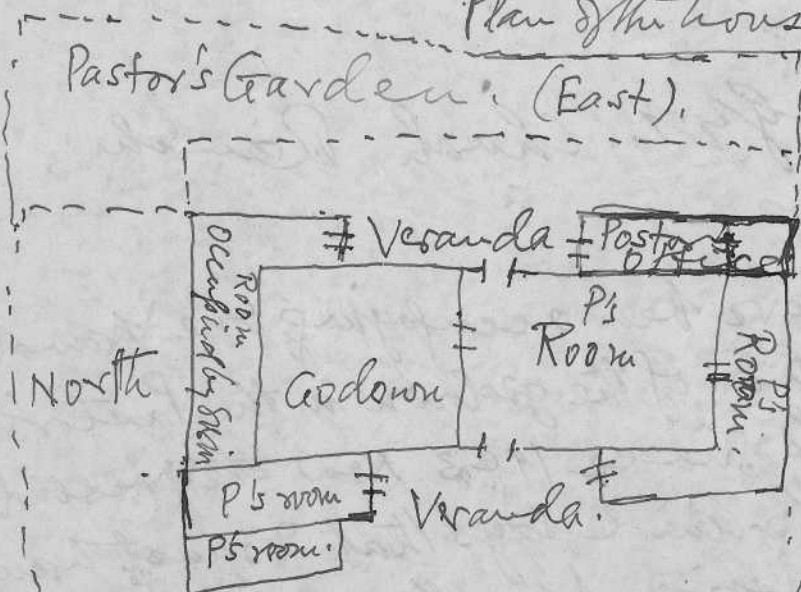 Plan of the hous
Pastor's Garden. (East).
Veranda
Post
office
Room
Occupied by
P's
Room
P's
Room.
North
Godown
P's room
Veranda.
P's room.